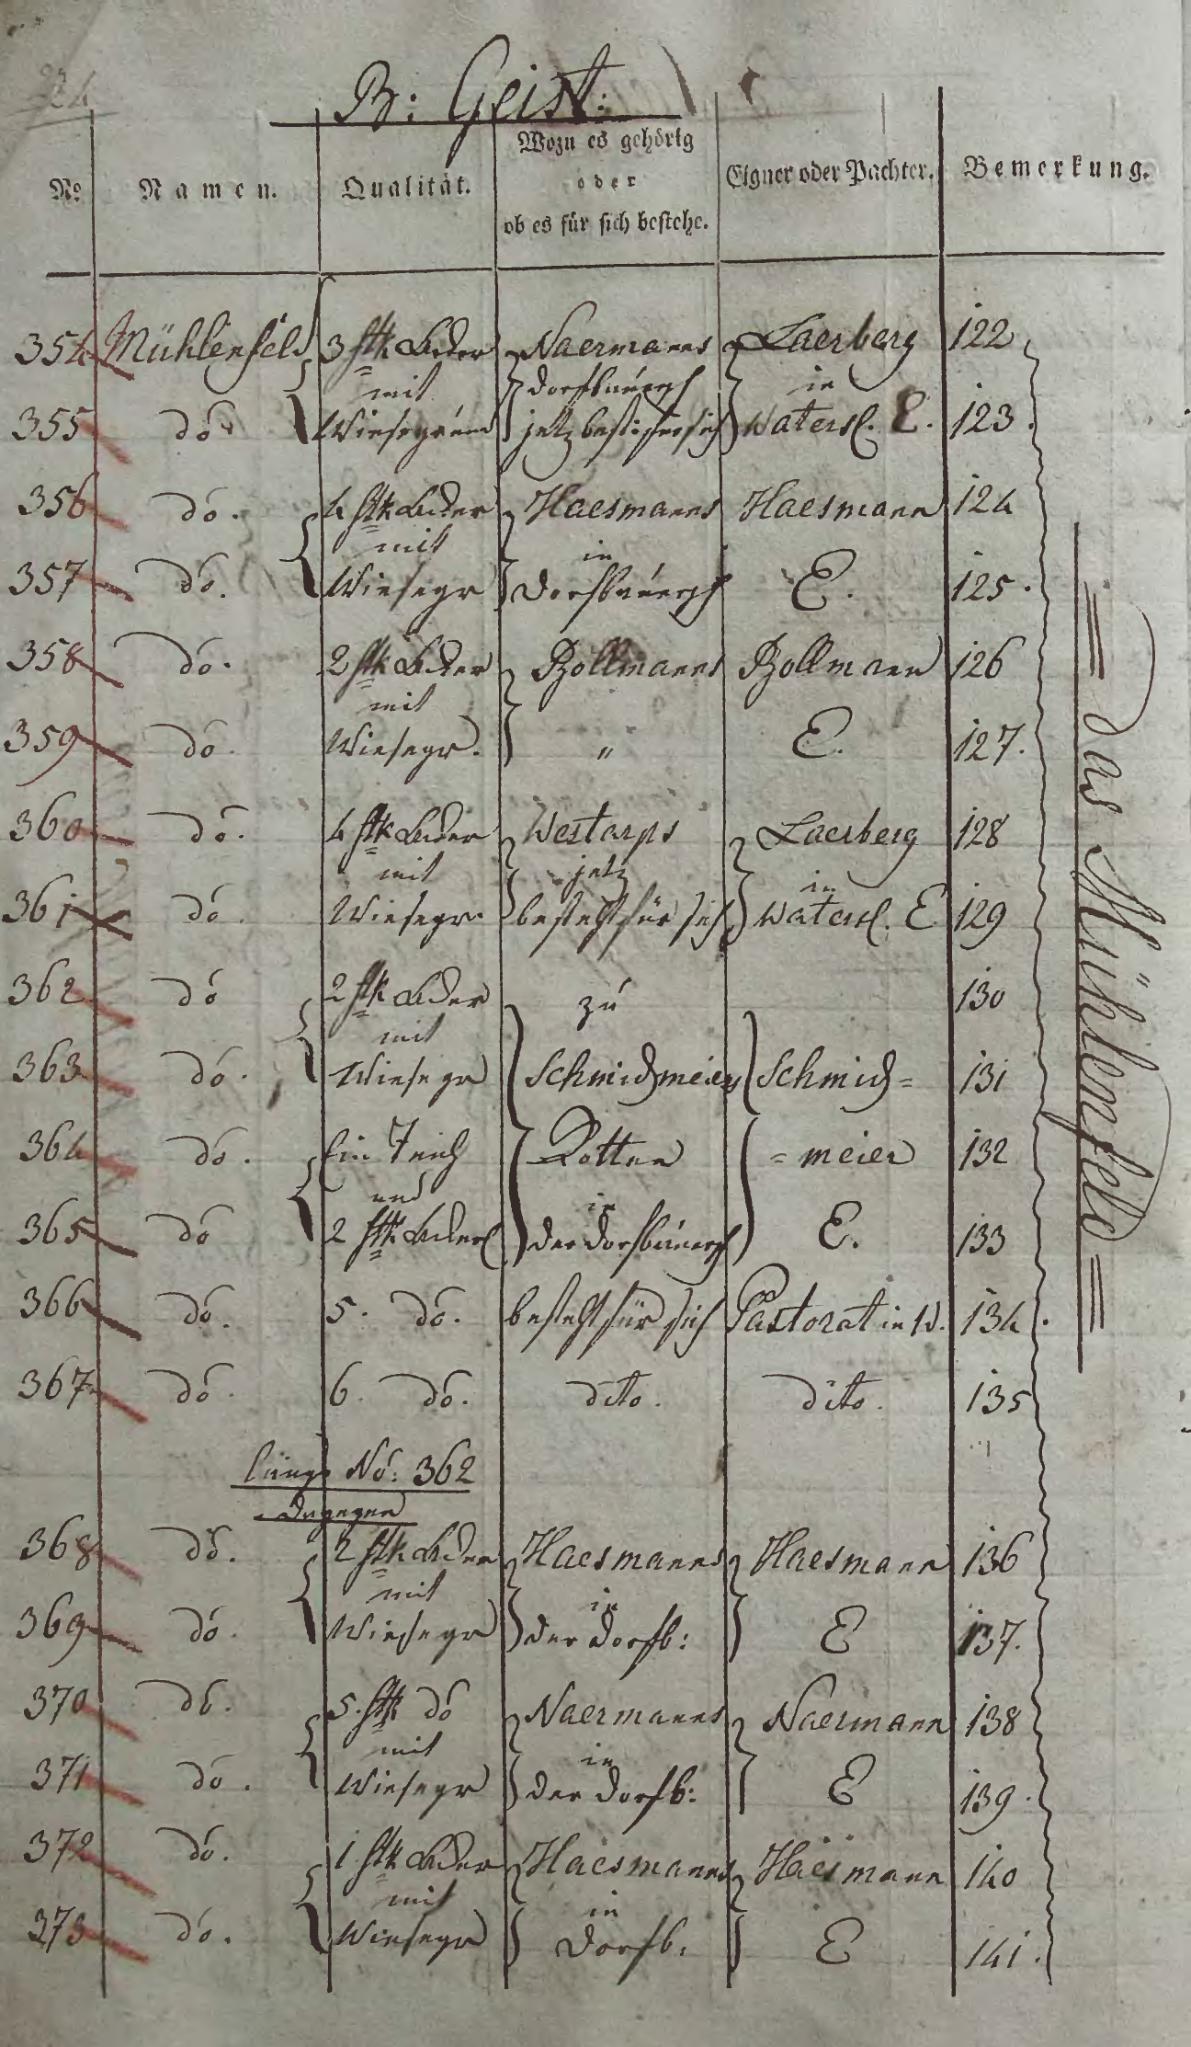 24
B: Geist:
No Namen. Qualität. Wozu es gehörig oder ob es für sich bestehe. Eigner oder Pachter. Bemerkung.
354 Mühlenfeld 3 stk Länder Naermanns Laerberg 122
mit dorfbauersch in
355 do Wiesegründ jetz best: für sich Watersl. E. 123.
356 do. 4 stk Länder Haesmanns Haesmann 124
mit in
357 do. Wiesegr dorfbauersch E. 125.
358 do. 2 stk Länder Bollmanns Bollmann 126
mit
359 do. Wiesegr. " E. 127.
360 do. 4 stk Länder Westarps Laerberg 128
mit jetz in
361 do. Wiesegr. besteht für sich Watersl. E 129
362 do 2 stk Länder zu 130
mit
363 do. Wiesegr Schmidmeiers Schmid= 131
364 do. Ein Teich Kotten =meier 132
und in
365 do 2 stk Länder der dorfbauersch E. 133
366 do. 5. do. besteht für sich Pastorat in W. 134.
367 do. 6. do. dito. dito. 135
längs No: 362
dagegen
368 do. 2 stk Länder Haesmanns Haesmann 136
mit in
369 do. Wiesegr der dorfb: E 137.
370 do. 5. stk do Naermanns Naermann 138
mit in
371 do. Wiesegr der dorfb: E 139.
372 do. 1 stk Länder Haesmanns Haesmann 140
mit in
373 do. Wiesegr dorfb: E 141.
= das Mühlenfeld =